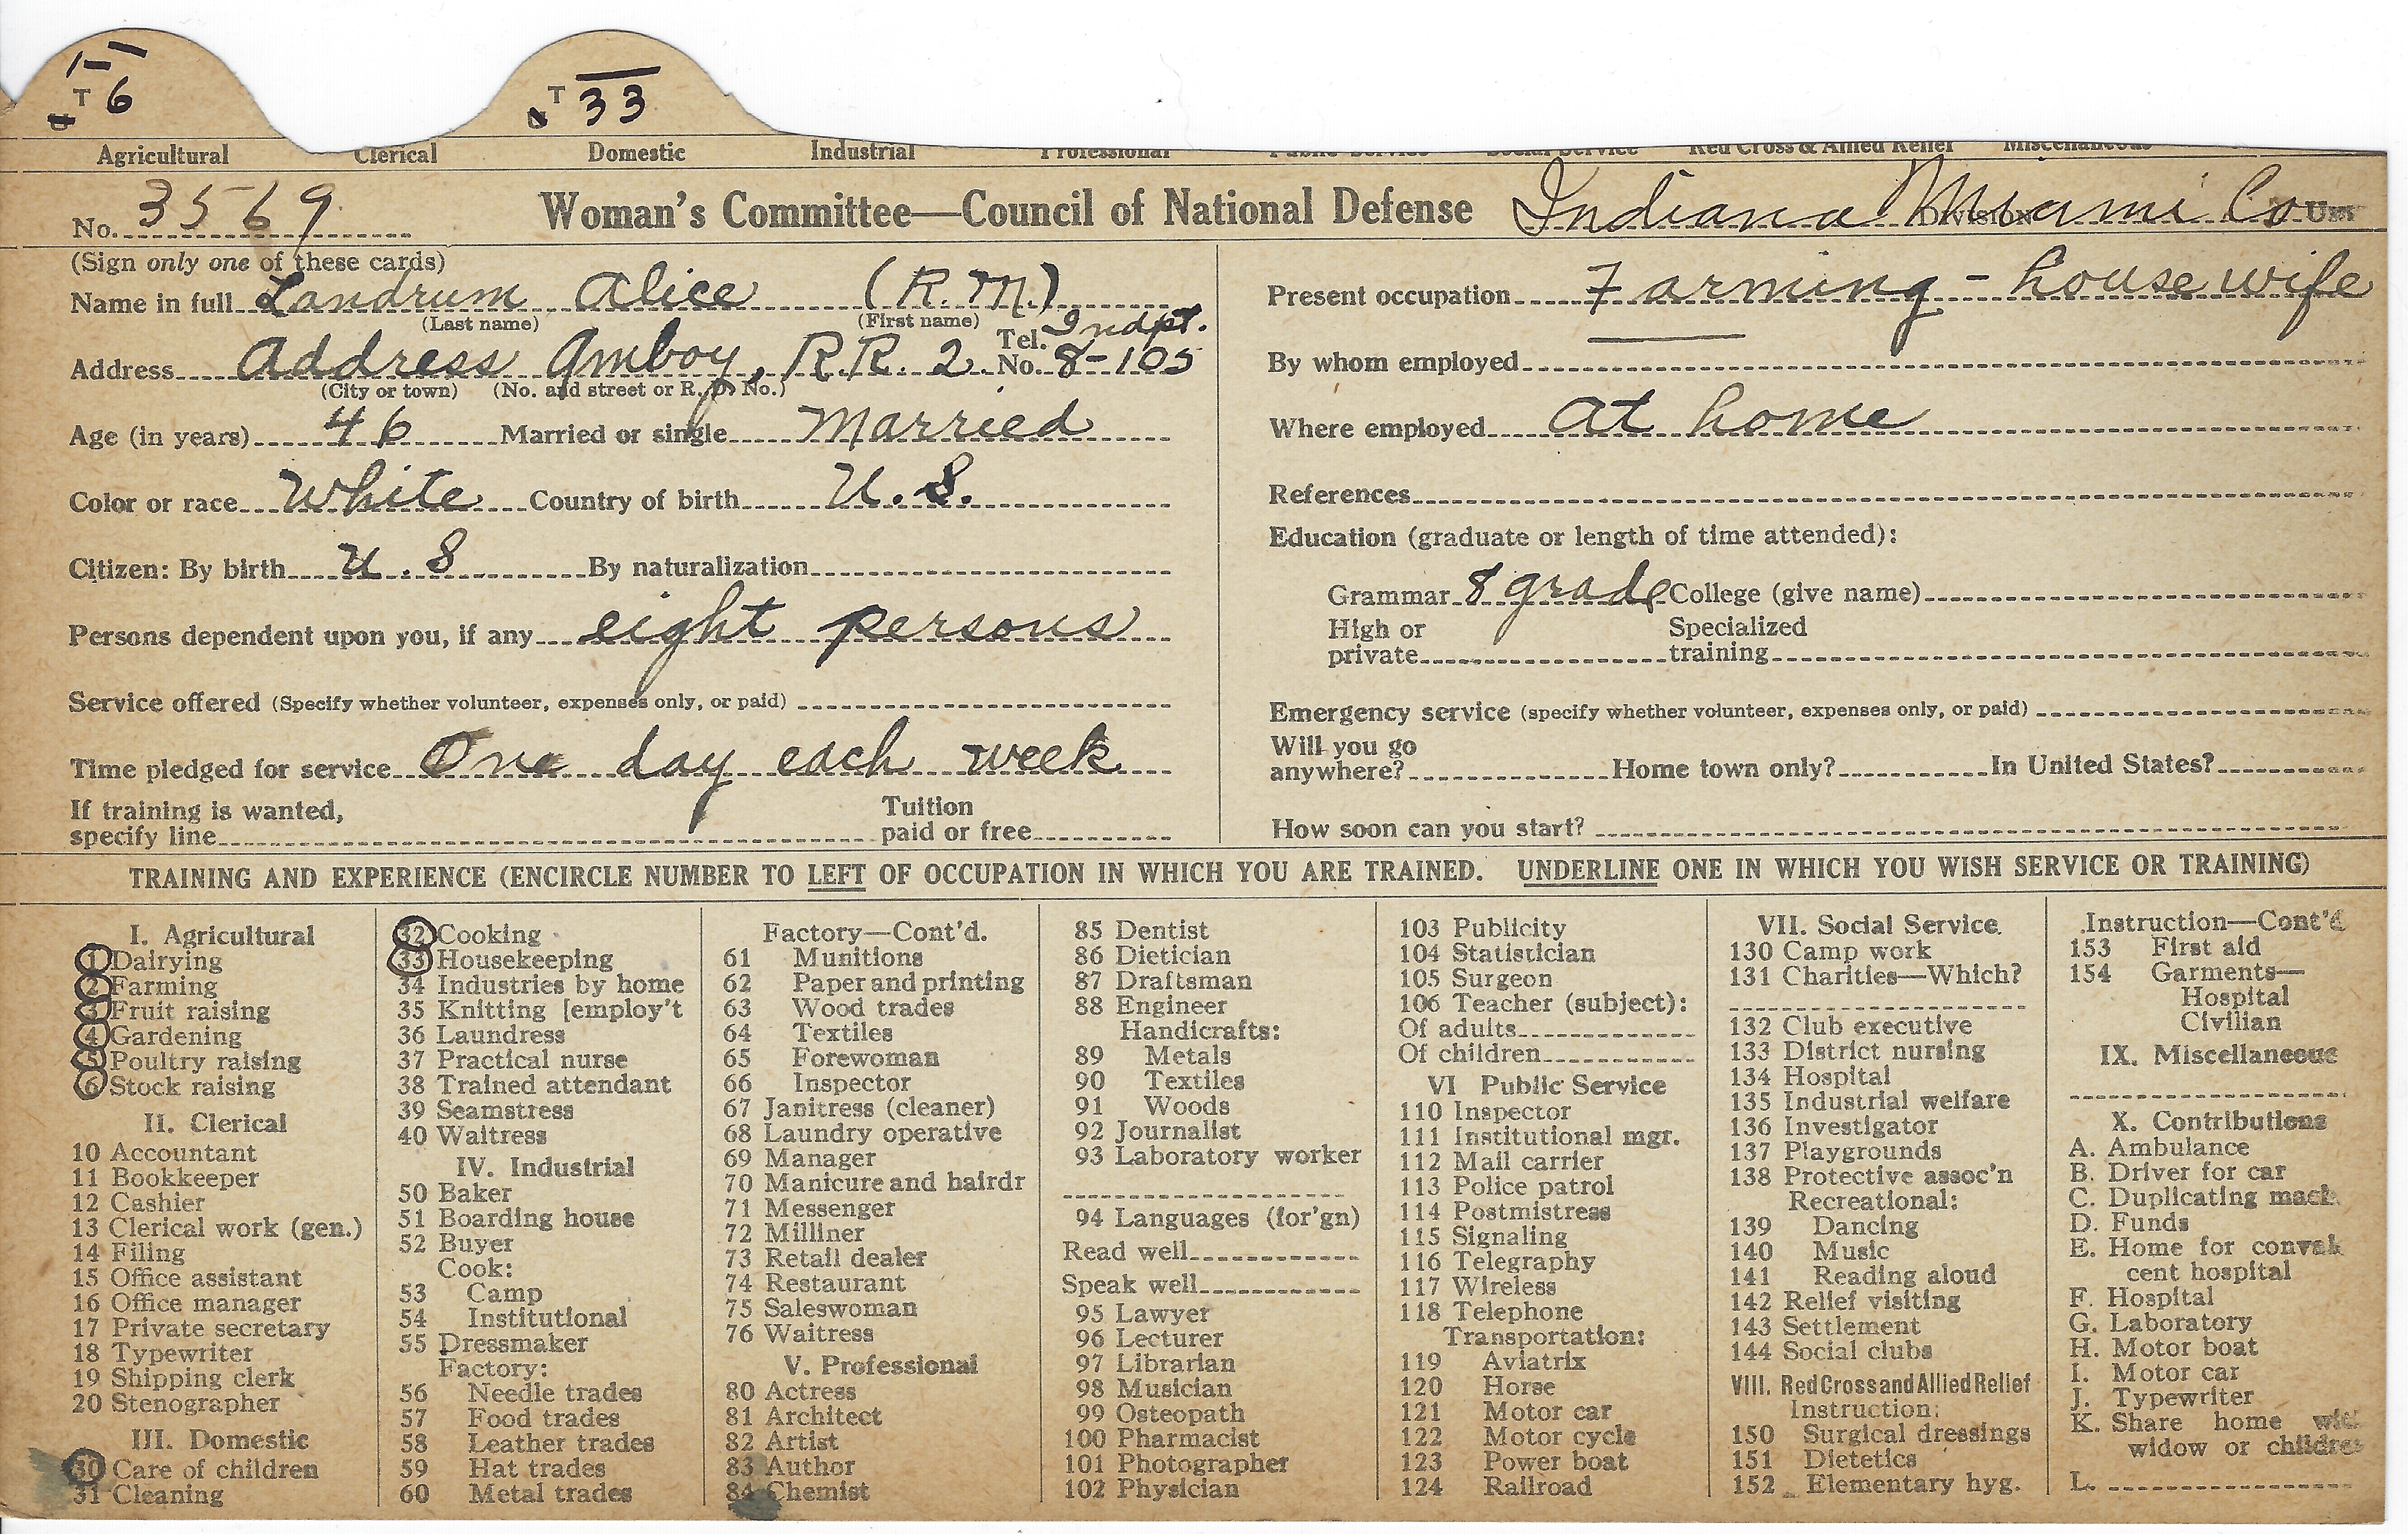 1 —
T 6
T 33
Agricultural Clerical Domestic Industrial Professional Public Service Social Service Red Cross & Allied Relief Miscellaneous
No. 3569 Woman's Committee—Council of National Defense Indiana Division Miami Co Unit
(Sign only one of these cards)
Name in full Landrum Alice (R.M.)
(Last name) (First name)
Address Address Amboy, R.R. 2 Tel. No. Indpt. 8-105
(City or town) (No. and street or R. F. D. No.)
Age (in years) 46 Married or single Married
Color or race White Country of birth U.S.
Citizen: By birth U.S By naturalization
Persons dependent upon you, if any eight persons
Service offered (Specify whether volunteer, expenses only, or paid)
Time pledged for service One day each week
If training is wanted, specify line Tuition paid or free
Present occupation Farming - house wife
By whom employed
Where employed At home
References
Education (graduate or length of time attended):
Grammar 8 grade College (give name)
High or private Specialized training
Emergency service (specify whether volunteer, expenses only, or paid)
Will you go anywhere? Home town only? In United States?
How soon can you start?
TRAINING AND EXPERIENCE (ENCIRCLE NUMBER TO LEFT OF OCCUPATION IN WHICH YOU ARE TRAINED. UNDERLINE ONE IN WHICH YOU WISH SERVICE OR TRAINING)
I. Agricultural
1 Dairying
2 Farming
3 Fruit raising
4 Gardening
5 Poultry raising
6 Stock raising
II. Clerical
10 Accountant
11 Bookkeeper
12 Cashier
13 Clerical work (gen.)
14 Filing
15 Office assistant
16 Office manager
17 Private secretary
18 Typewriter
19 Shipping clerk
20 Stenographer
III. Domestic
30 Care of children
31 Cleaning
32 Cooking
33 Housekeeping
34 Industries by home
35 Knitting [employ't
36 Laundress
37 Practical nurse
38 Trained attendant
39 Seamstress
40 Waitress
IV. Industrial
50 Baker
51 Boarding house
52 Buyer
Cook:
53 Camp
54 Institutional
55 Dressmaker
Factory:
56 Needle trades
57 Food trades
58 Leather trades
59 Hat trades
60 Metal trades
Factory—Cont'd.
61 Munitions
62 Paper and printing
63 Wood trades
64 Textiles
65 Forewoman
66 Inspector
67 Janitress (cleaner)
68 Laundry operative
69 Manager
70 Manicure and hairdr
71 Messenger
72 Milliner
73 Retail dealer
74 Restaurant
75 Saleswoman
76 Waitress
V. Professional
80 Actress
81 Architect
82 Artist
83 Author
84 Chemist
85 Dentist
86 Dietician
87 Draftsman
88 Engineer
Handicrafts:
89 Metals
90 Textiles
91 Woods
92 Journalist
93 Laboratory worker
94 Languages (for'gn)
Read well
Speak well
95 Lawyer
96 Lecturer
97 Librarian
98 Musician
99 Osteopath
100 Pharmacist
101 Photographer
102 Physician
103 Publicity
104 Statistician
105 Surgeon
106 Teacher (subject):
Of adults
Of children
VI Public Service
110 Inspector
111 Institutional mgr.
112 Mail carrier
113 Police patrol
114 Postmistress
115 Signaling
116 Telegraphy
117 Wireless
118 Telephone
Transportation:
119 Aviatrix
120 Horse
121 Motor car
122 Motor cycle
123 Power boat
124 Railroad
VII. Social Service.
130 Camp work
131 Charities—Which?
132 Club executive
133 District nursing
134 Hospital
135 Industrial welfare
136 Investigator
137 Playgrounds
138 Protective assoc'n
Recreational:
139 Dancing
140 Music
141 Reading aloud
142 Relief visiting
143 Settlement
144 Social clubs
VIII. Red Cross and Allied Relief
Instruction:
150 Surgical dressings
151 Dietetics
152 Elementary hyg.
Instruction—Cont'd
153 First aid
154 Garments—
Hospital
Civilian
IX. Miscellaneous
X. Contributions
A. Ambulance
B. Driver for car
C. Duplicating mach.
D. Funds
E. Home for convales
cent hospital
F. Hospital
G. Laboratory
H. Motor boat
I. Motor car
J. Typewriter
K. Share home with
widow or children
L.